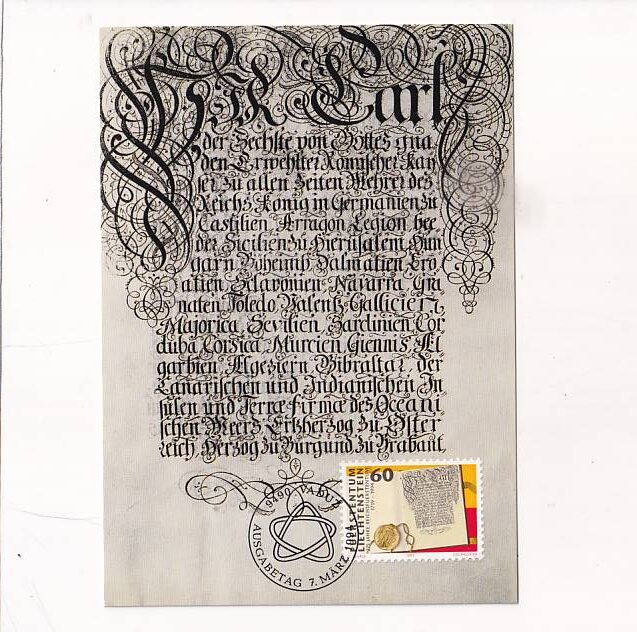 Wir Carl
der Sechste von Gottes gna
den Erwehlter Römischer Kay
ser zu allen Zeiten Mehrer des
Reichs König in Germanien zu
Castilien Arragon Legion bee
der Sicilien zu Hierusalem Hun
garn Böheimb Dalmatien Cro
atien Sclavonien Navarra Gra
naten Toledo Valentz Gallicien
Majorica Sevilien Sardinien Cor
duba Corsica Murcien Giennis El
garbien Elgeziern Gibraltar der
Canarischen und Indianischen In
sulen und Terræ firmæ des Oceani
schen Meers Ertzherzog zu Öster
reich Herzog zu Burgund zu Brabant
60
FÜRSTENTUM
LIECHTENSTEIN
1719 - 1994
Carl
9490 VADUZ
AUSGABETAG 7. MÄRZ 1994